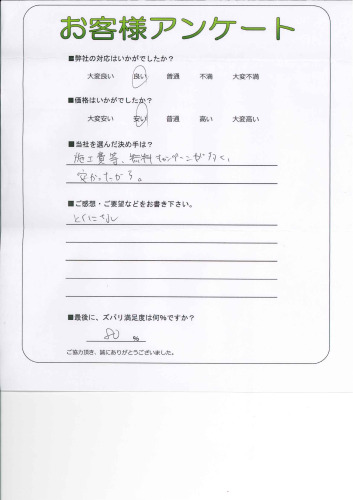 お客様アンケート
■弊社の対応はいかがでしたか？
大変良い 良い 普通 不満 大変不満
■価格はいかがでしたか？
大変安い 安い 普通 高い 大変高い
■当社を選んだ決め手は？
施工費等、無料キャンペーンが多く、
安かったから。
■ご感想・ご要望などをお書き下さい。
とくになし
■最後に、ズバリ満足度は何％ですか？
80 ％
ご協力頂き、誠にありがとうございました。